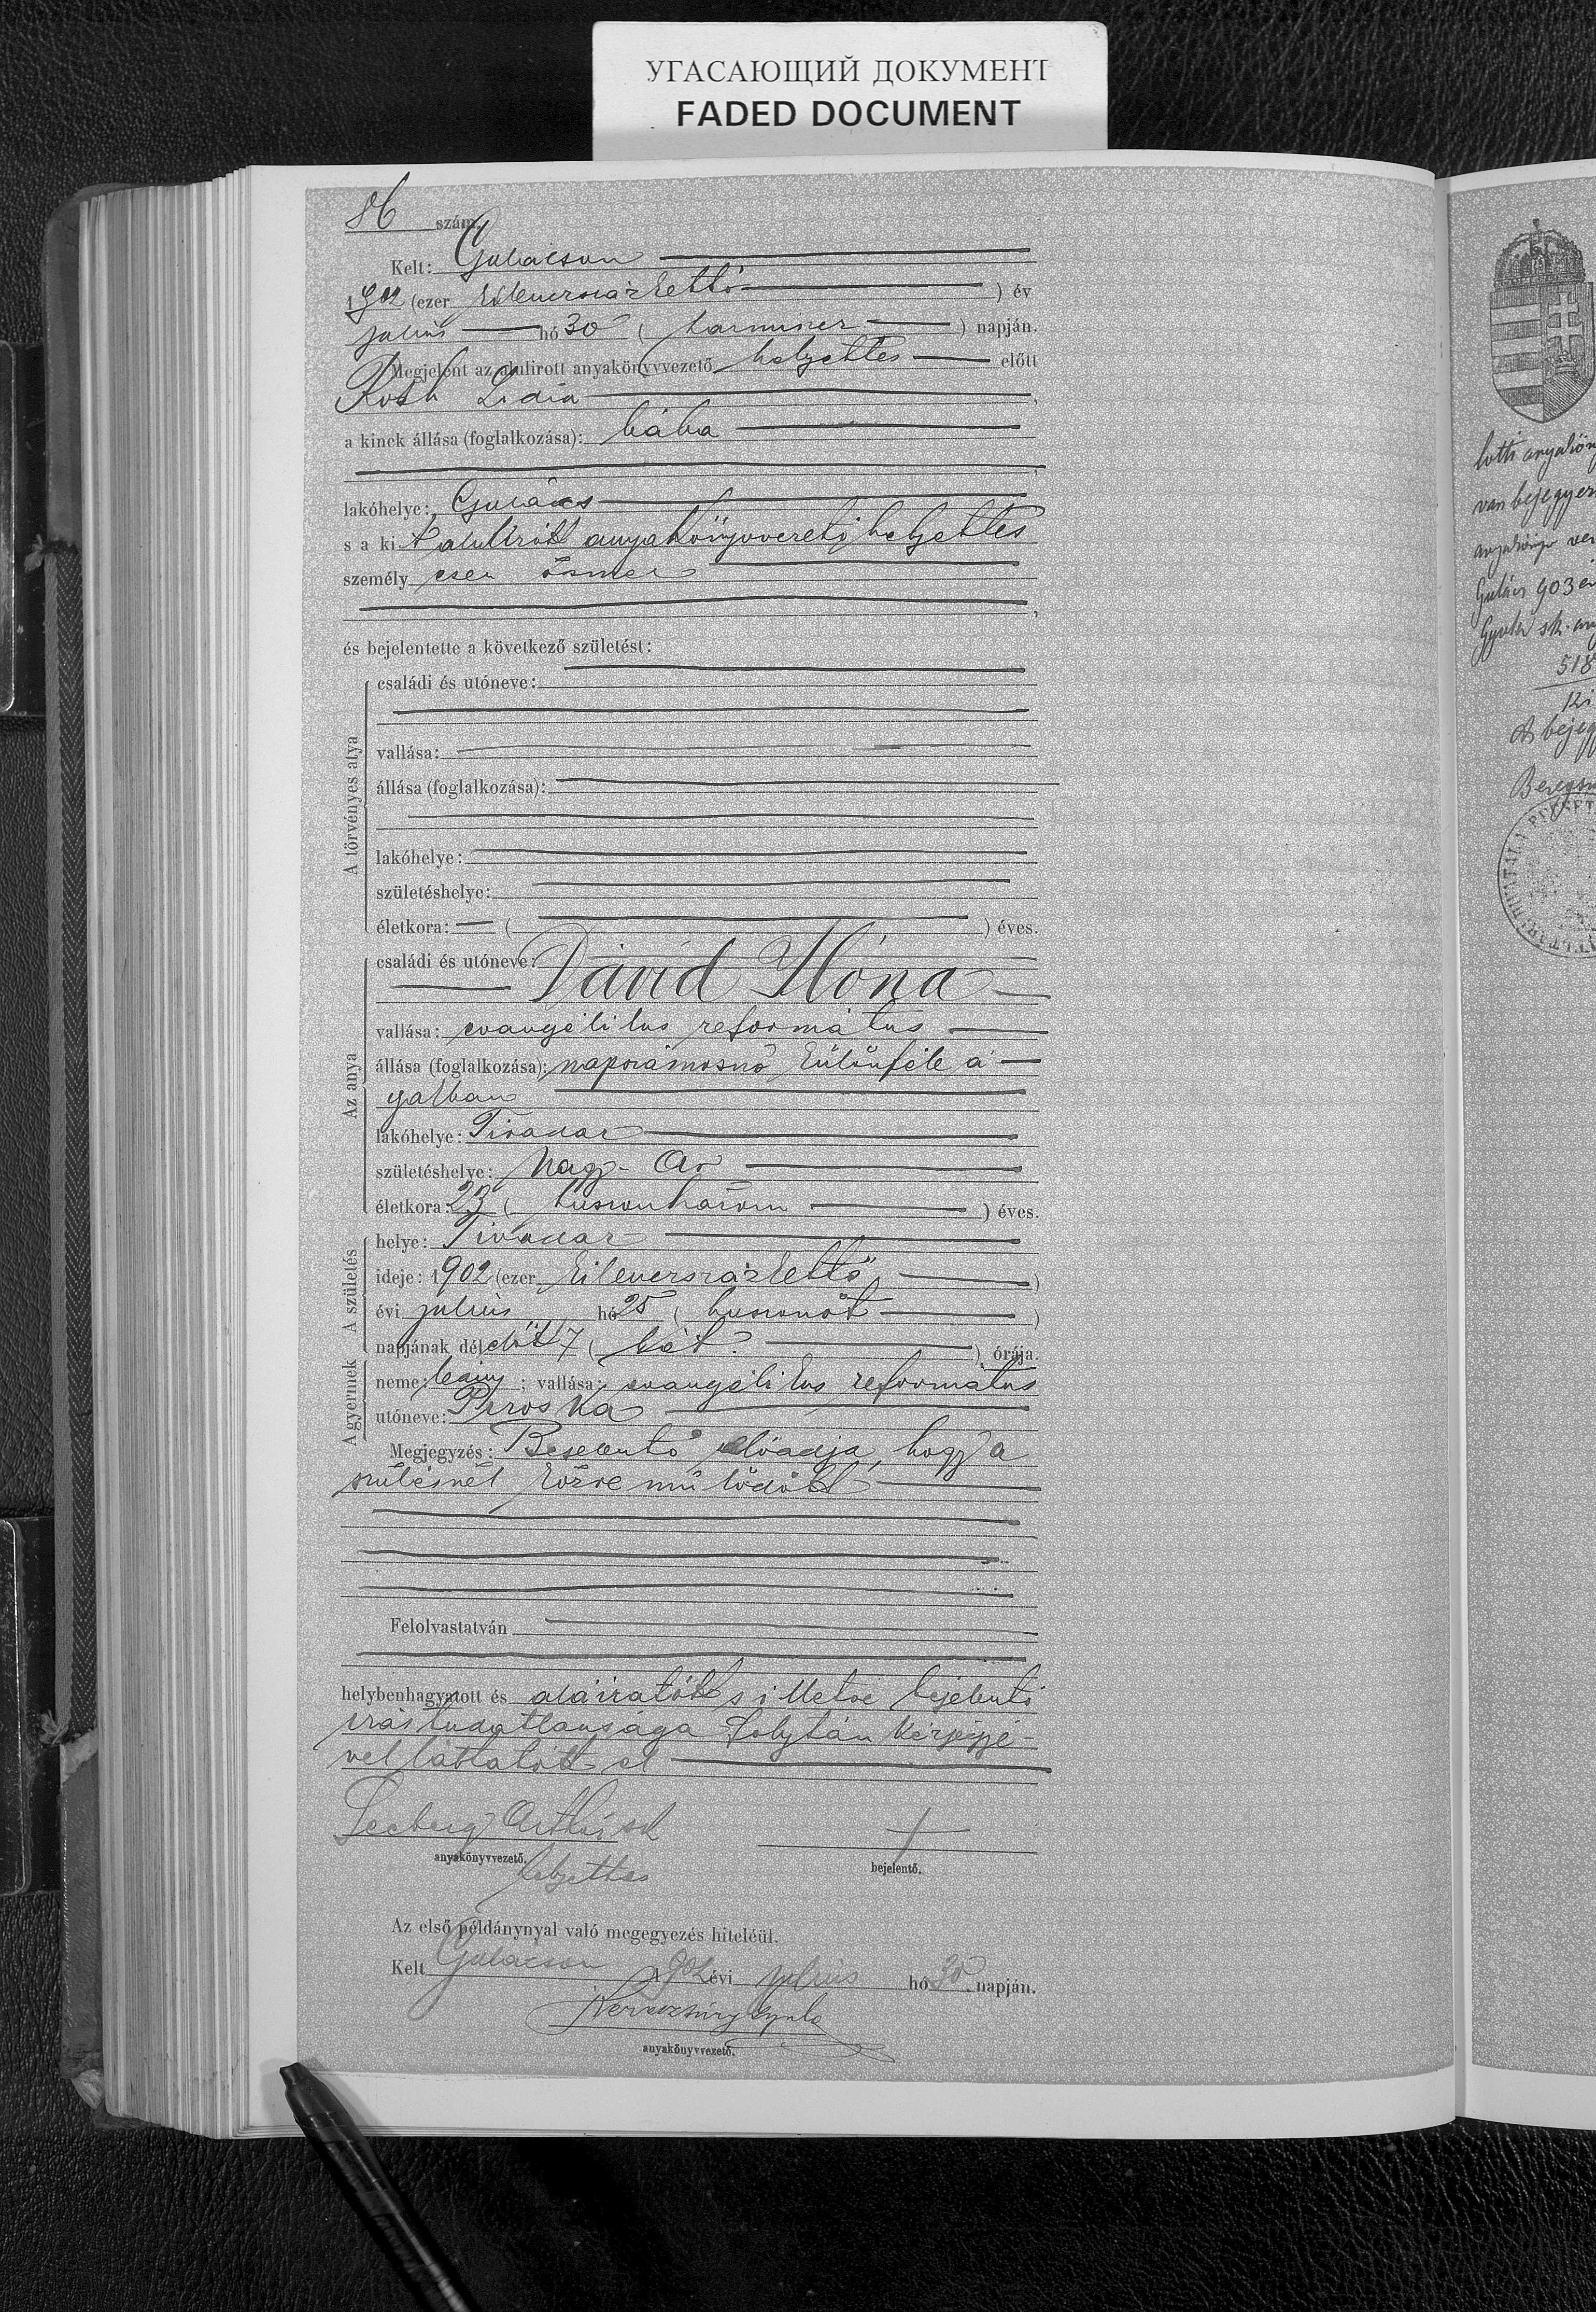 УГАСАЮЩИЙ ДОКУМЕНТ
FADED DOCUMENT
86 szám.
Kelt: Gulácson
1902 (ezer kilencszázkettő) év
julius hó 30 (harmincz) napján.
Megjelent az alulirott anyakönyvvezető helyettes előtt
Róth Lidia,
a kinek állása (foglalkozása): bába
lakóhelye: Gulács
s a kit alulírott anyakönyvvezető helyettes
személyesen ösmer,
és bejelentette a következő születést:
A törvényes atya
családi és utóneve:
vallása:
állása (foglalkozása):
lakóhelye:
születéshelye:
életkora: ( ) éves.
Az anya
családi és utóneve:
Dávid Ilóna
vallása: evangélikus református
állása (foglalkozása): napszámosnő különféle á
gakban
lakóhelye: Tivadar
születéshelye: Nagy-Ar
életkora: 23 (huszonhárom) éves.
A születés
helye: Tivadar
ideje: 1902 (ezer kilencszázkettő)
évi julius hó 25 (huszonöt)
napjának délelőtt 7 (hét) órája.
A gyermek
neme: leány; vallása: evangélikus református
utóneve: Piroska
Megjegyzés: Bejelentő előadja, hogy a
szülésnél közre müködött
Felolvastatván
helybenhagyatott és aláiratott s illetve bejelentő
irástudatlansága folytán kézjegyé-
vel láttatott el
Arthúr sk
anyakönyvvezető. helyettes
bejelentő.
Az első példánynyal való megegyezés hiteléül.
Kelt Gulácson 1902 évi julius hó 30. napján.
Gyula
anyakönyvvezető.
van bejegyez
Gulács 903 é
518
A bejeg
Beregs